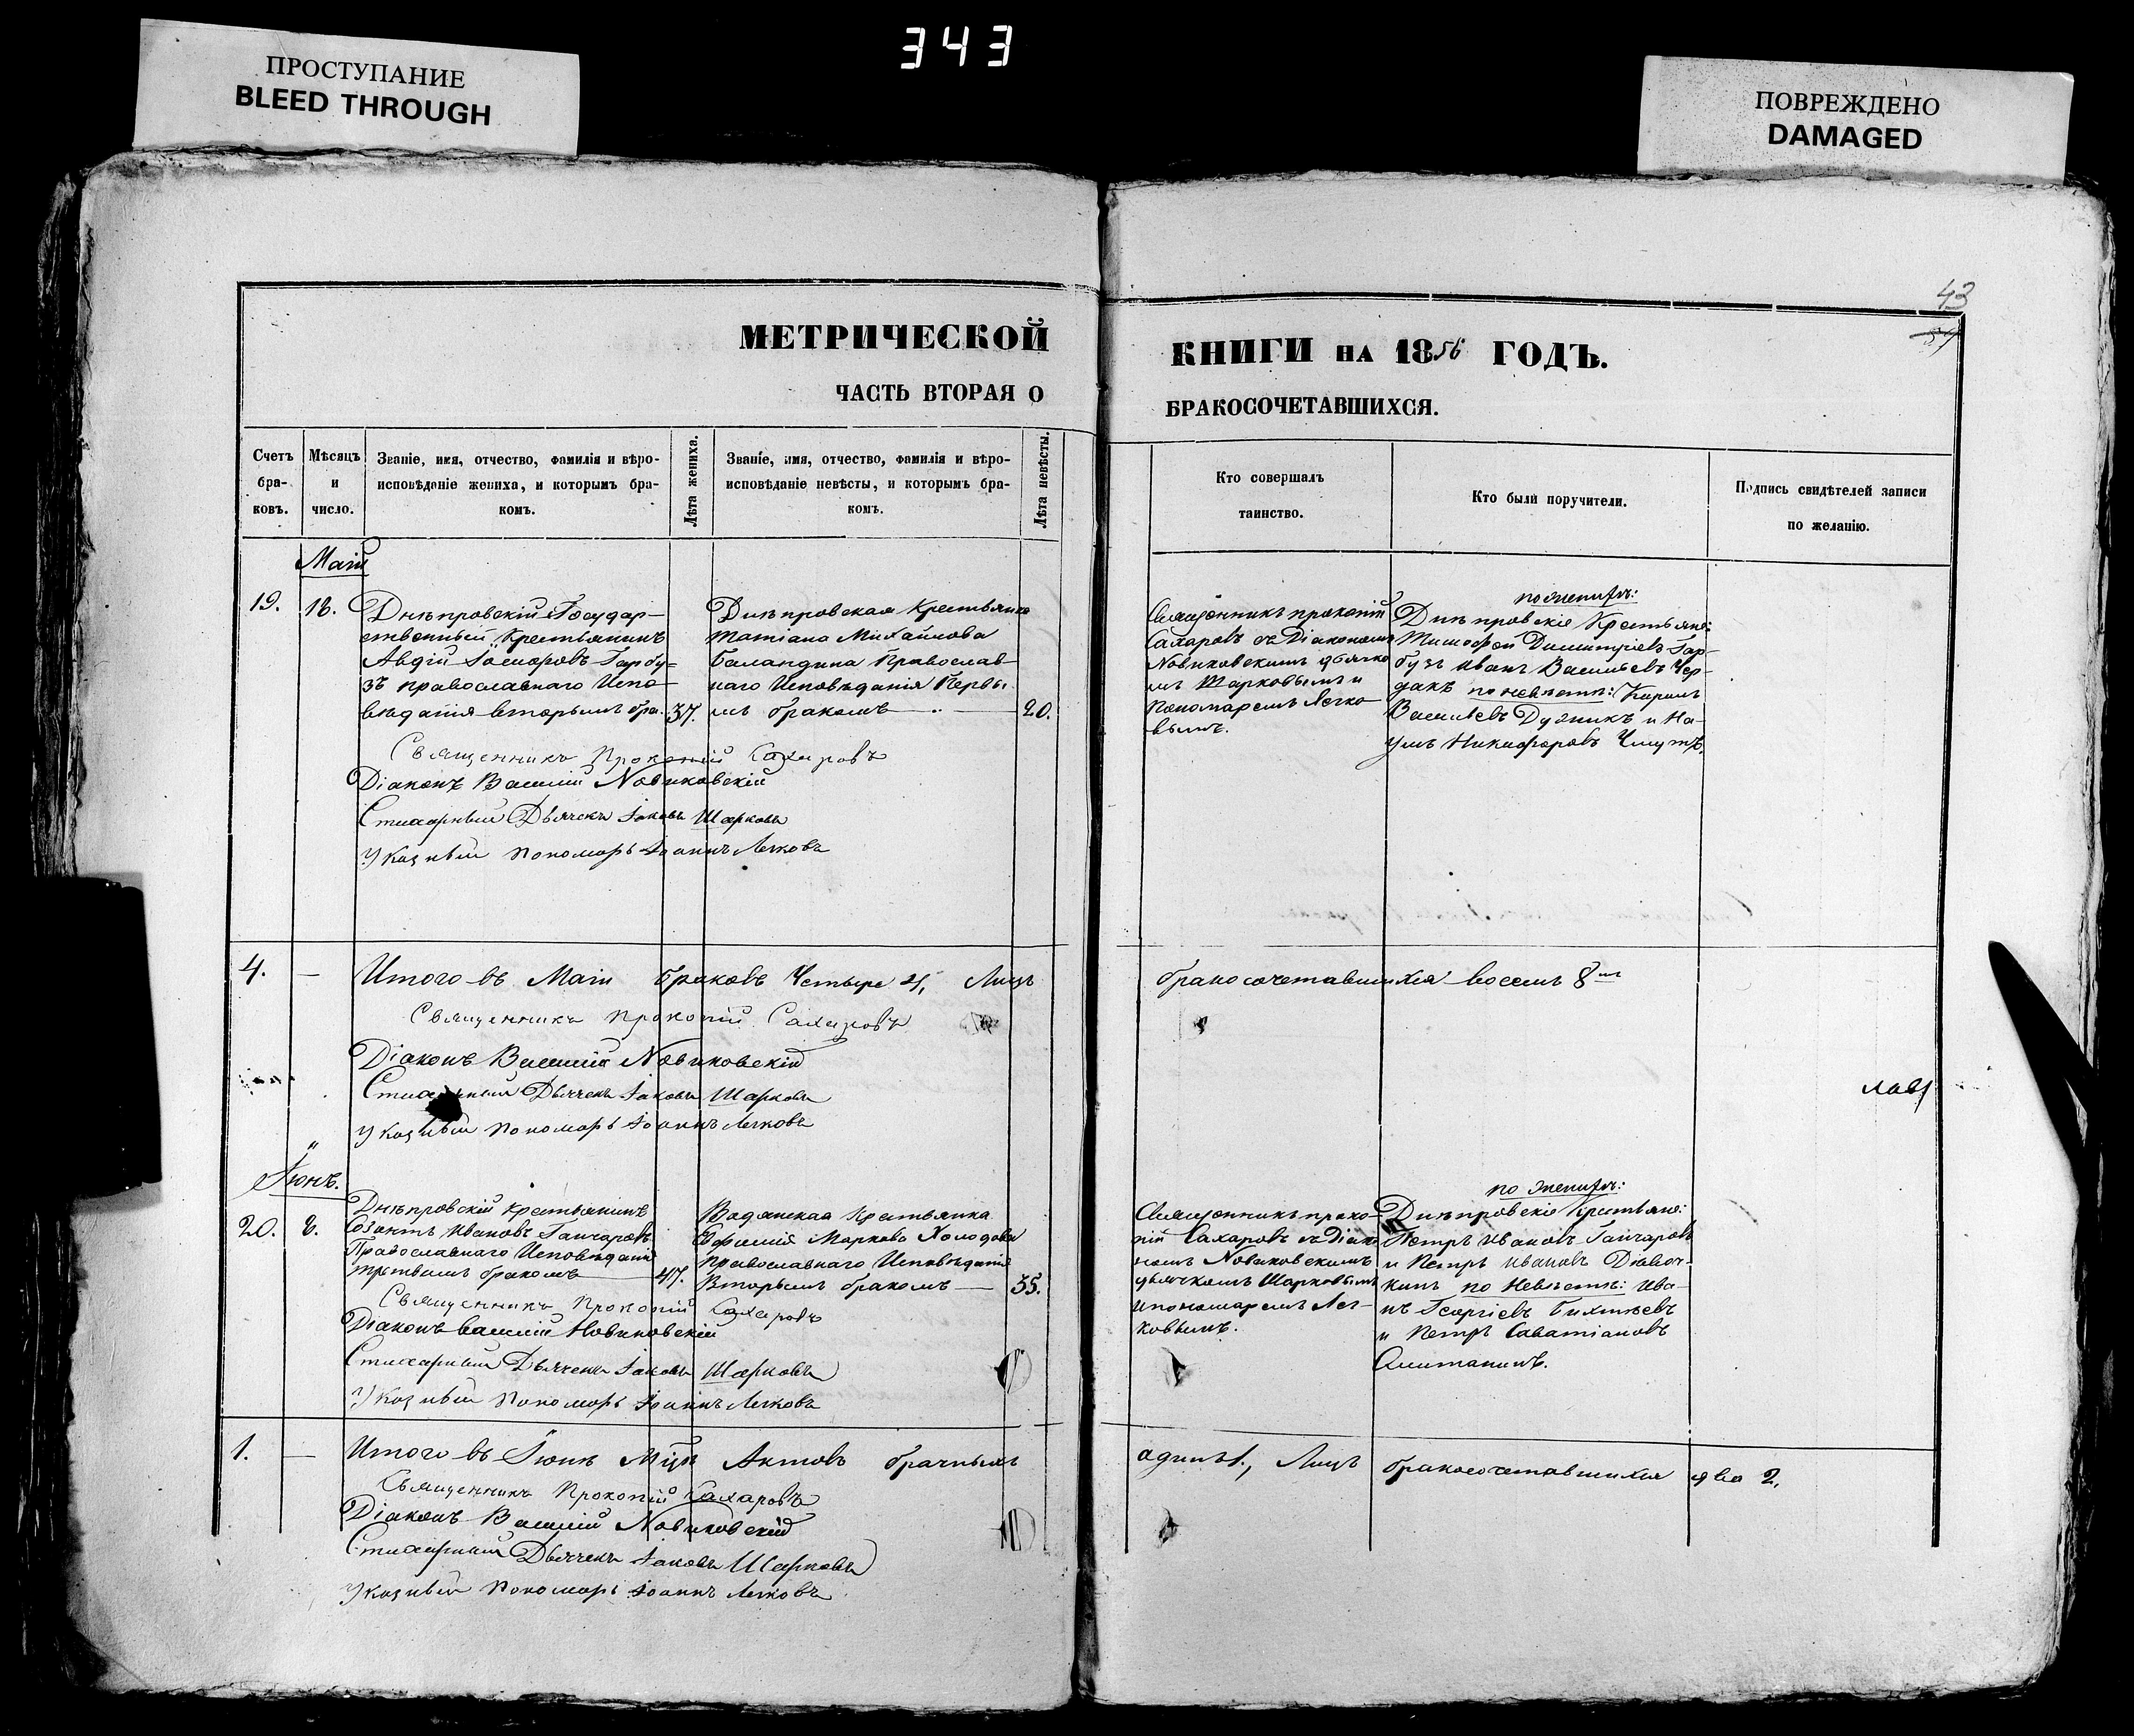 343
ПРОСТУПАНИЕ
BLEED THROUGH
ПОВРЕЖДЕНО
DAMAGED
43
МЕТРИЧЕСКОЙ
ЧАСТЬ ВТОРАЯ О
КНИГИ НА 1856 ГОДЪ.
БРАКОСОЧЕТАВШИХСЯ.
Счетъ
бра-
ковъ.
Мѣсяцъ
и
число.
Званіе, имя, отчество, фамилія и вѣро-
исповѣданіе жениха, и которымъ бра-
комъ.
Лѣта жениха.
Званіе, имя, отчество, фамилія и вѣро-
исповѣданіе невѣсты, и которымъ бра-
комъ.
Лѣта невѣсты.
Кто совершалъ
таинство.
Кто были поручители.
Подпись свидѣтелей записи
по желанію.
Маій
19.
18.
Днѣпровскій Государ-
ственный Крестьянинъ
Авдій Гарбу=
зъ православнаго Испо-
вѣданія вторымъ бра.
37.
Днѣпровская Крестьянка
Татіана Михайлова
Баландина Православ-
наго Исповѣданія Первы
мъ бракомъ
20.
Священникъ Прокопій
Сахаровъ съ Діакономъ
Новиковскимъ дьячко
мъ Шарковымъ и
Пономаремъ Легко
вымъ.
по женихѣ:
Днѣпровскіе Крестьяне:
Тимофей Димитріевъ Гар-
бузъ Иванъ Васильевъ Чер-
дакъ по невѣстѣ: Кирилъ
Васильевъ Дузникъ и На-
умъ Никифоровъ
Священникъ Прокопій Сахаровъ
Діаконъ Василій Новиковскій
Стихарный Дьячекъ Іаковъ Шарковъ
Указный Пономарь Іоаннъ Легковъ
4.
Итого въ Маіи браковъ Четыре 4, Лицъ
бракосочетавшихся восемь 8мь
Священникъ Прокопій Сахаровъ
Діаконъ Василій Новиковскій
Стихарный Дьячекъ Іаковъ Шарковъ
Указный Пономарь Іоаннъ Легковъ
Іюнь.
20.
Днѣпровскій Крестьянинъ
Созонтъ Ивановъ Ганчаровъ
Православнаго Исповѣданія
третьимъ бракомъ
47.
Водянская Крестьянка
Ефимія Маркова Холодова
Православнаго Исповѣданія
Вторымъ бракомъ
35.
Священникъ Проко-
пій Сахаровъ съ Діако
номъ Новиковскимъ
дьячкомъ Шарковымъ
и пономаремъ Лег-
ковымъ.
по женихѣ:
Днѣпровскіе Крестьяне:
Петръ Ивановъ Ганчаровъ
и Петръ Ивановъ
по Невѣстѣ: Ива-
нъ Георгіевъ
и Петръ Саватіановъ
Священникъ Прокопій Сахаровъ
Діаконъ Василій Новиковскій
Стихарный Дьячекъ Іаковъ Шарковъ
Указный Пономарь Іоаннъ Легковъ
1.
Итого въ Іюнѣ Мцѣ Актовъ брачныхъ
адинъ 1, Лицъ бракосочетавшихся два 2.
Священникъ Прокопій Сахаровъ
Діаконъ Василій Новиковскій
Стихарный Дьячекъ Іаковъ Шарковъ
Указный Пономарь Іоаннъ Легковъ